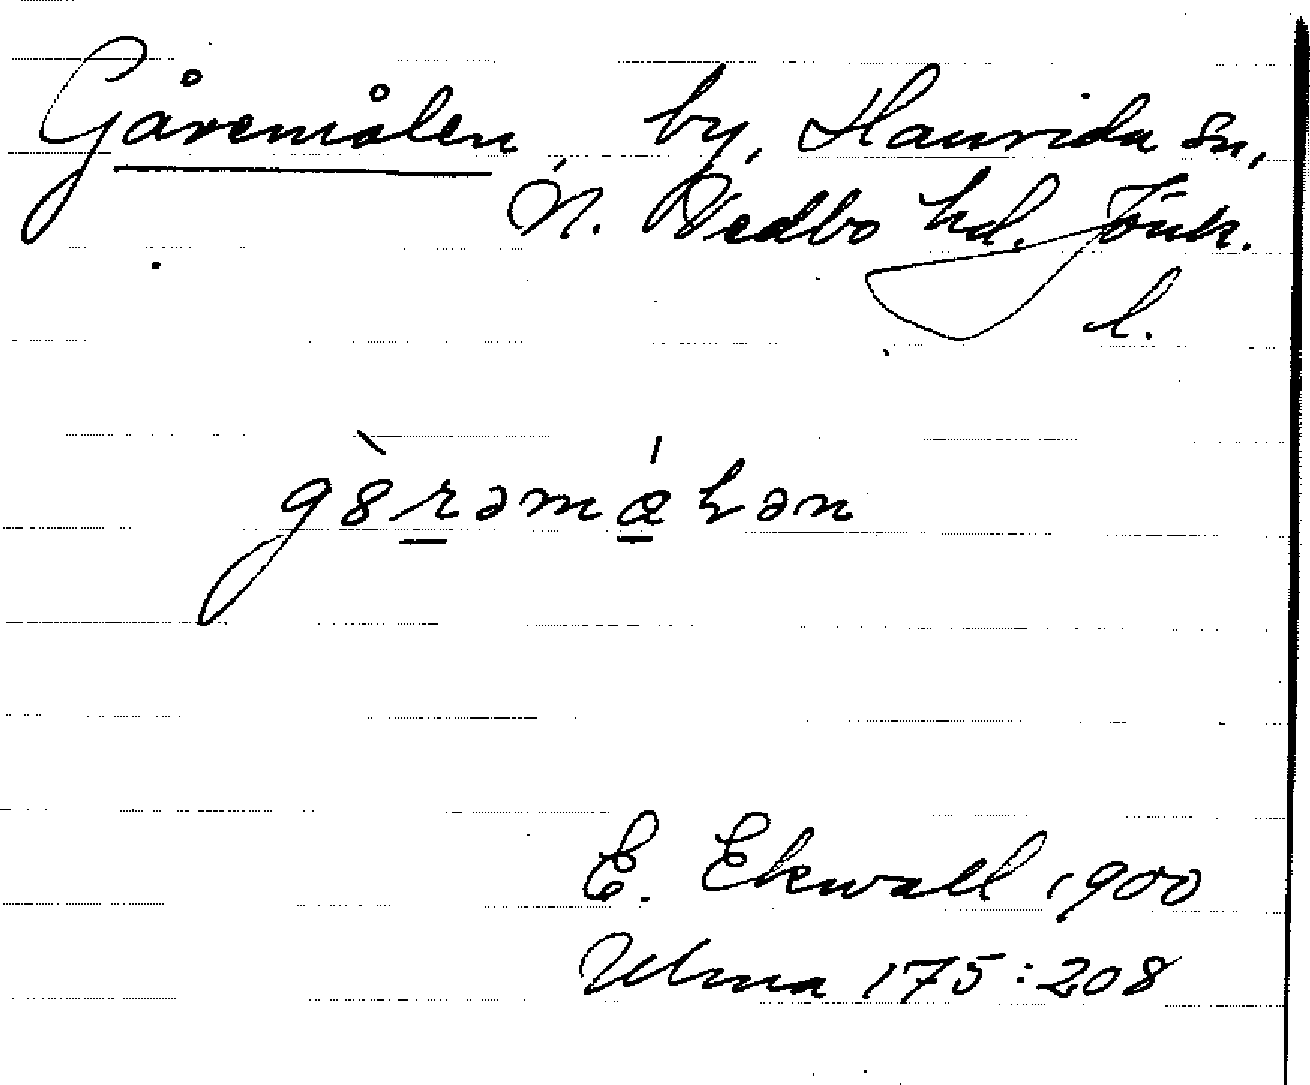 Gåremålen, by, Haurida sn,
N. Vedbo hd. Jönk.
l.
g8̀rəmǽɦən
E. Ekwall 1900
Ulma 175:208